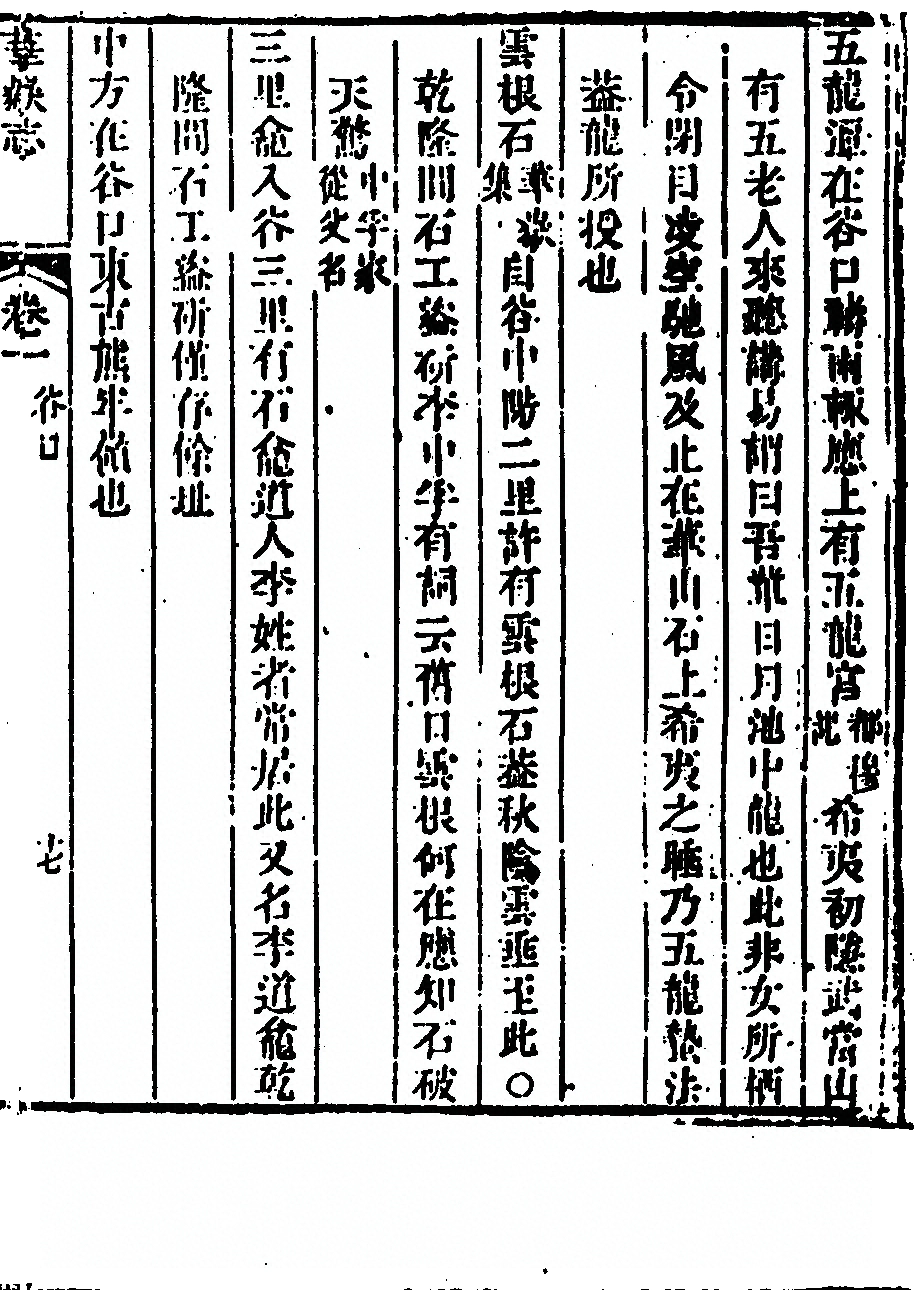 五龍潭在谷口禱雨輒應上有五龍宮希夷初隱武當山
有五老人來聽講易謂曰吾輩日月池中龍也此非女所栖
令閉目凌空馳風及止在華山石上希夷之睡乃五龍蟄法
蓋龍所授也
雲根石華嶽集自谷中陟二里許有雲根石蓋秋陰雲垂至此○
乾隆間石工鑿斫李中孚有詞云舊日雲根何在應知石破
天驚中孚家從父者
三里龕入谷三里有石龕道人李姓者常居此又名李道龕乾
隆間石工鑿斫僅存餘址
中方在谷口東古熊牢嶺也
華嶽志 卷一 谷口 十七